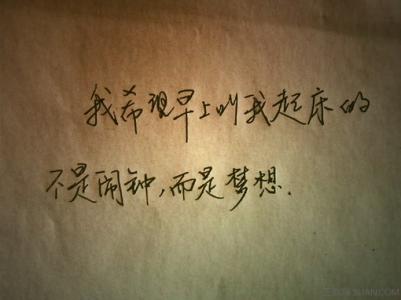 我希现早上叫我起床的
不是闹钟,而是梦想.